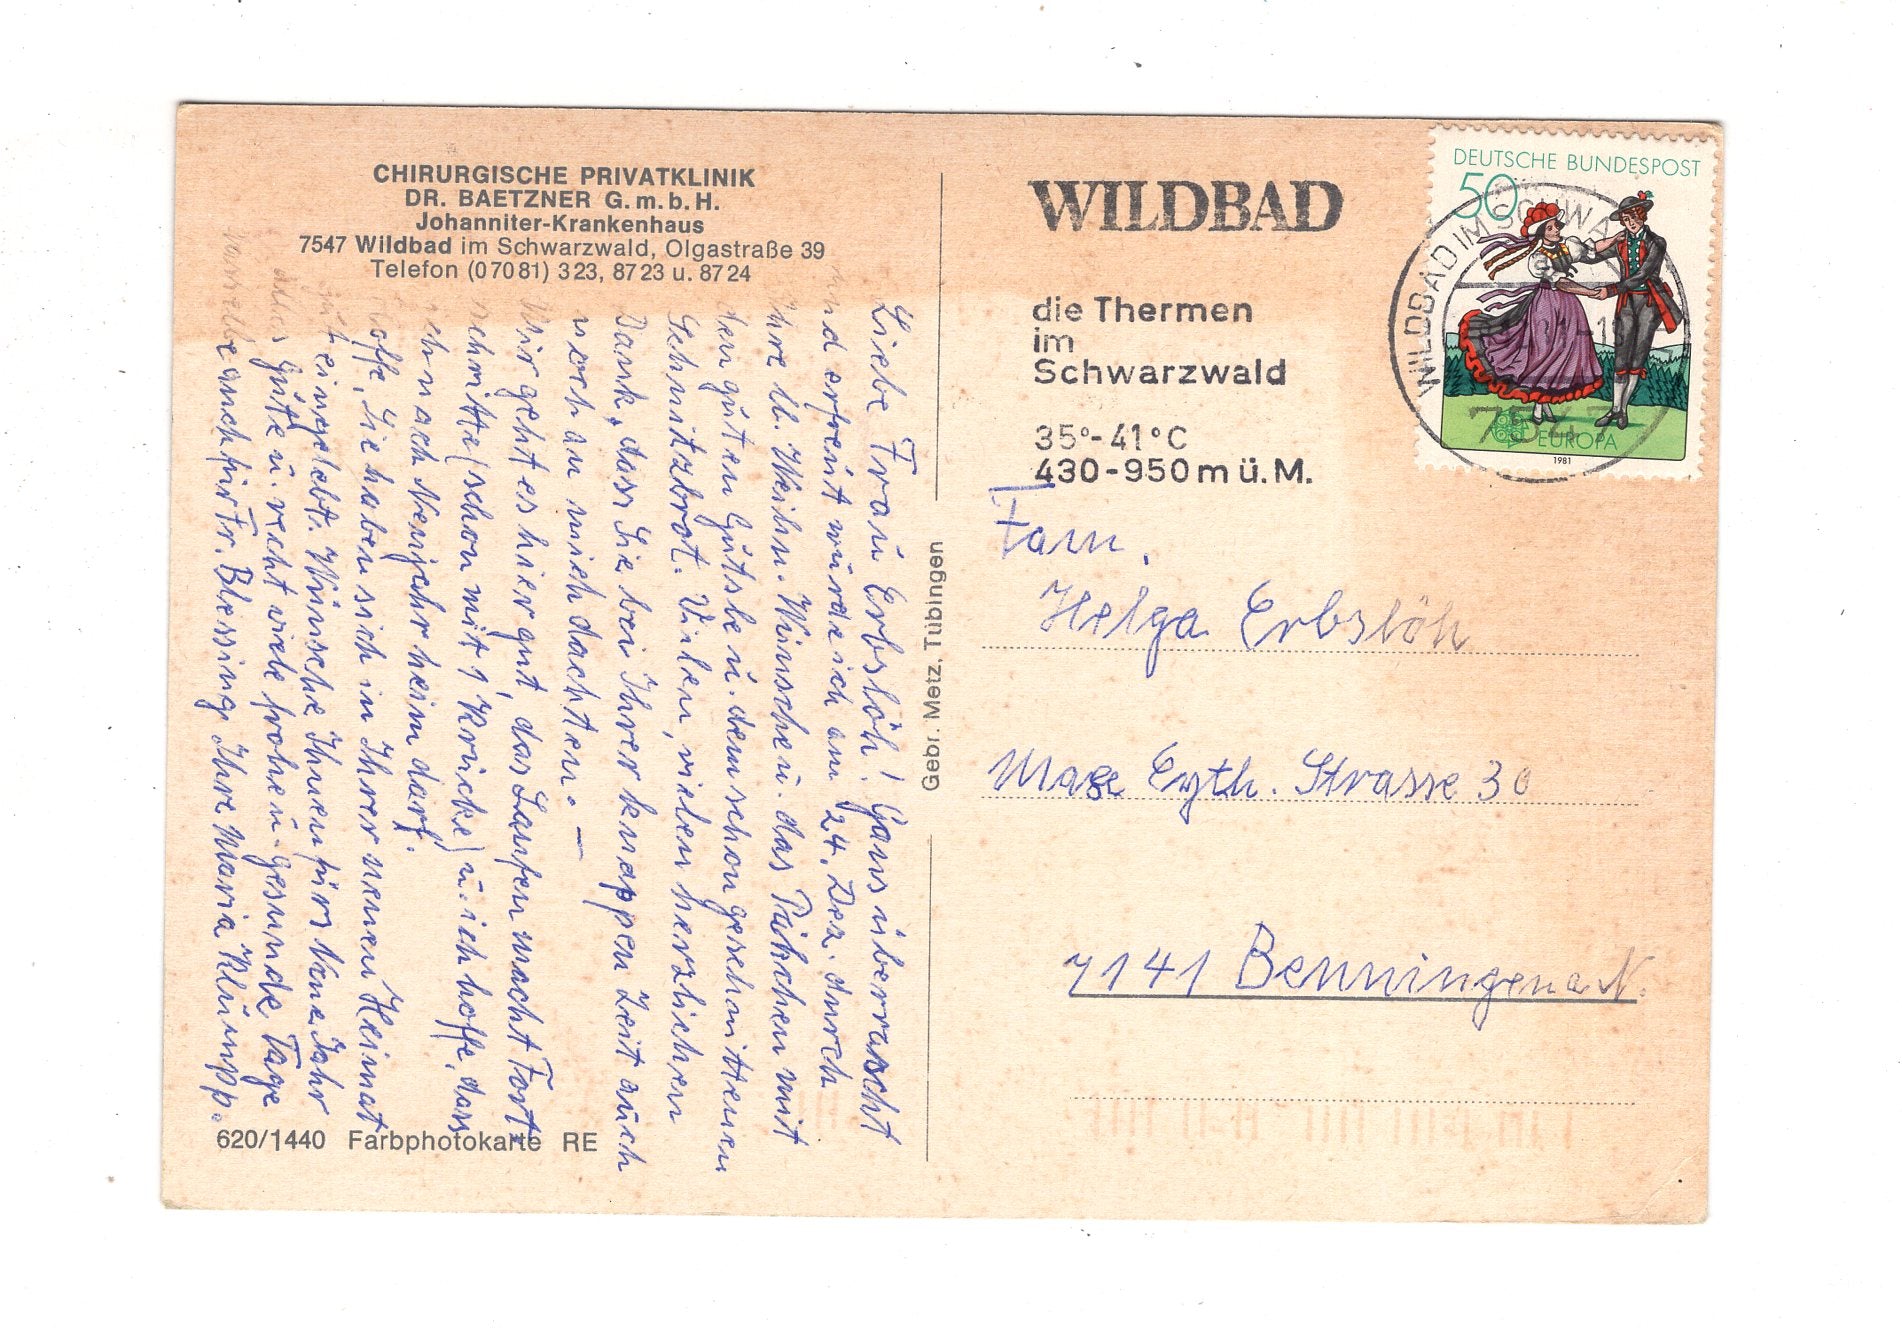 CHIRURGISCHE PRIVATKLINIK
DR. BAETZNER G.m.b.H.
Johanniter-Krankenhaus
7547 Wildbad im Schwarzwald, Olgastraße 39
Telefon (07081) 323, 8723 u. 8724
Liebe Frau Erbslöh! Ganz überrascht
und erfreut wurde ich am 24. Dez. durch
Ihre lb. Weihn. Wünsche u. das Päckchen mit
den guten Gutsle u. dem schon geschnittenen
Schnitzbrot. Vielen, vielen herzlichen
Dank, dass Sie bei Ihrer knappen Zeit auch
noch an mich dachten. —
Mir geht es hier gut, das Laufen macht Fort-
schritte (schon mit 1 Krücke) u. ich hoffe, dass
ich nach Neujahr heim darf.
Hoffe, Sie haben sich in Ihrer neuen Heimat
gut eingelebt. Wünsche Ihnen fürs Neue Jahr
alles Gute u. recht viele frohe u. gesunde Tage
auch für Fr. Blessing. Ihre Maria Klumpp.
620/1440 Farbphotokarte RE
Gebr. Metz, Tübingen
WILDBAD
die Thermen
im
Schwarzwald
35°-41°C
430-950m ü.M.
DEUTSCHE BUNDESPOST
50
EUROPA
1981
WILDBAD IM SCHWA
7547
Fam.
Helga Erbslöh
Max Eyth. Strasse 30
7141 Benningen a N.